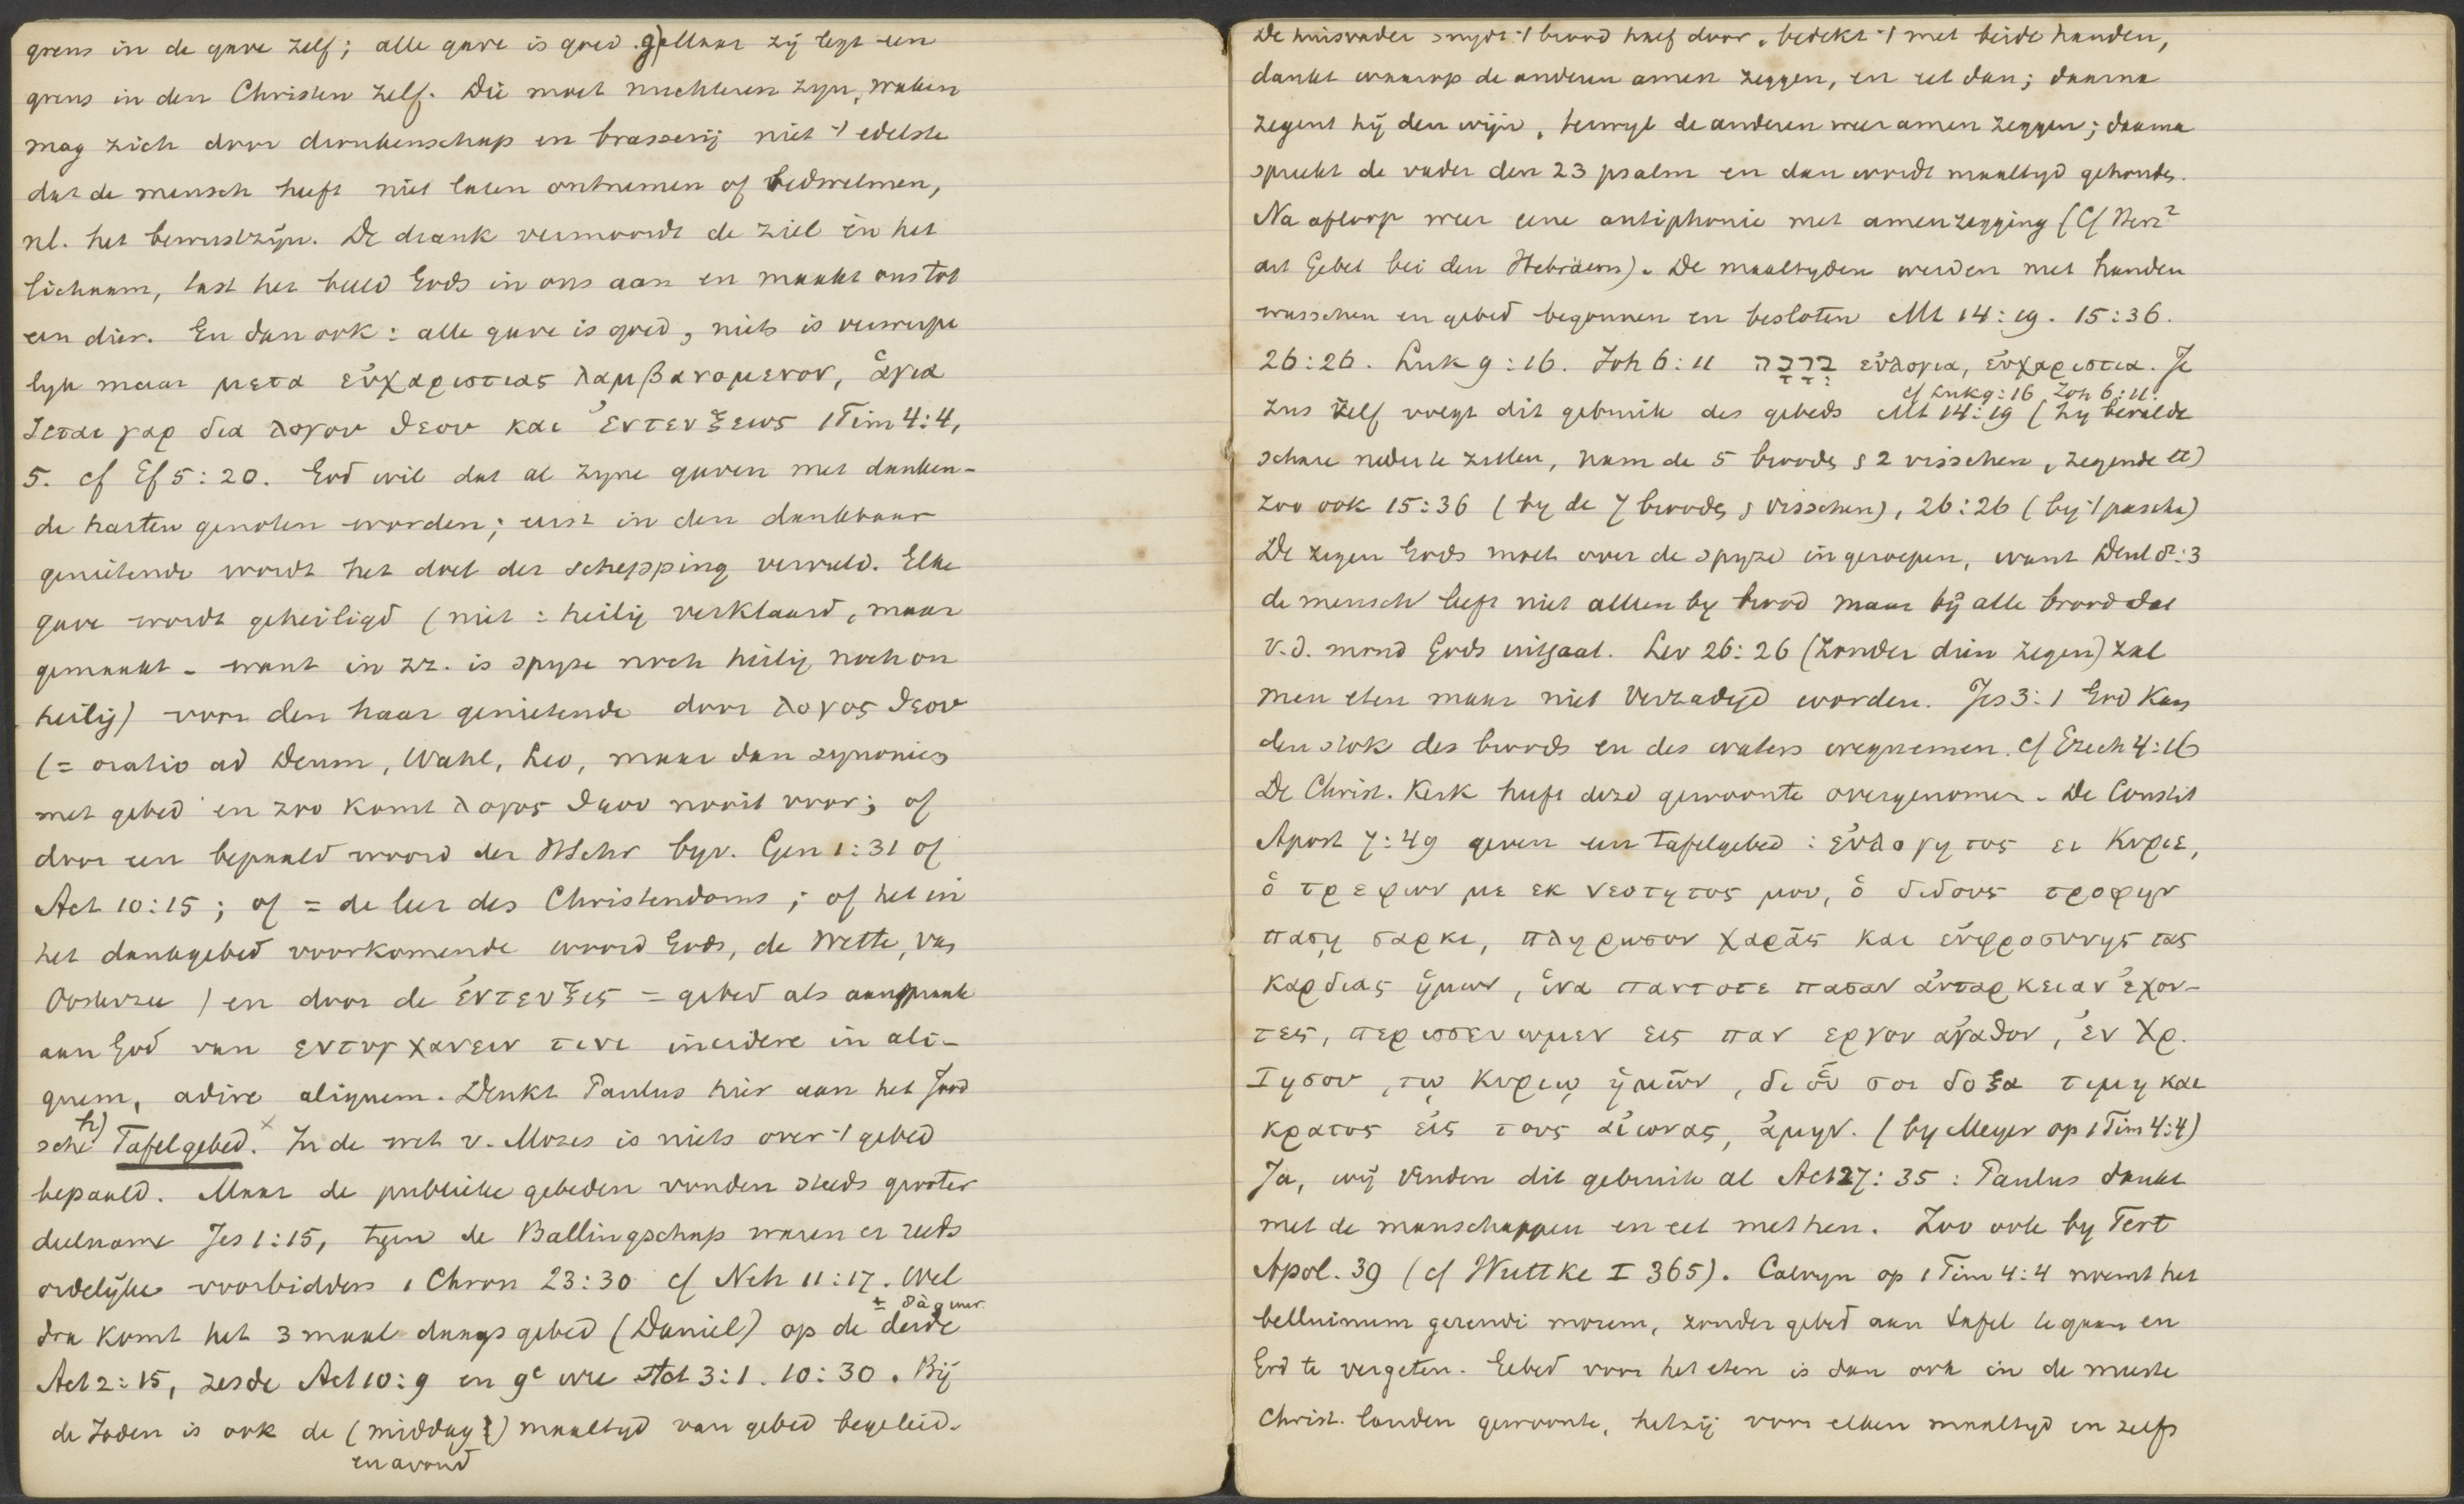 grens in de gave zelf; alle gave is goed. g) Maar zij legt een
grens in den Christen zelf. Die moet nuchteren zyn, waken
mag zich door dronkenschap en brasserij niet 't edelste
dat de mensch heeft niet laten ontnemen of bedwelmen,
nl. het bewustzijn. De drank vermoordt de ziel in het
lichaam, tast het beeld Gods in ons aan en maakt ons tot
een dier. En dan ook: alle gave is goed, niets is verwerpe
lyk maar μετα εὐχαριστιας λαμβανομενον, ἁγια
ζεται γαρ δια λογου θεου και ἐντευξεως 1 Tim 4:4,
5. cf Ef 5:20. God wil dat al zyne gaven met danken-
de harten genoten worden; eerst in den dankbaar
genietende wordt het doel der schepping vervuld. Elke
gave wordt geheiligd (niet: heilig verklaard, maar
gemaakt - want in zz. is spyze noch heilig noch on
heilig) voor den haar genietende door λογος θεου
(= oratio ad Deum, Wahl, Leo, maar dan synoniem
met gebed en zoo komt λογος θεου nooit voor; of
door een bepaald woord der HSchr byv. Gen 1:31 of
Act 10:15; of = de leer des Christendoms; of het in
het dankgebed voorkomende woord Gods, de Wette, Van
Oosterzee) en door de ἐντευξις = gebed als aanspraak
aan God van εντυγχανειν τινι incidere in ali-
quem, adire aliquem. Denkt Paulus hier aan het Jood
sche h) Tafelgebed. x In de wet v. Mozes is niets over 't gebed
bepaald. Maar de publieke gebeden vonden steeds grooter
deelname Jes 1:15, tyden de Ballingschap waren er reeds
ordelijke voorbidders 1 Chron 23:30 cf Neh 11:17. Wel
dra komt het 3 maal daags gebed (Daniel) op de derde
Act 2:15, zesde Act 10:9 en 9e ure Act 3:1. 10:30. Bij
de Joden is ook de (middag) maaltyd van gebed begeleid.
en avond
De huisvader snydt 't brood half door, bedekt 't met beide handen,
dankt waarop de anderen amen zeggen, en eet dan; daarna
zegent hij den wijn, terwyl de anderen weer amen zeggen; daarna
spreekt de vader den 23 psalm en dan wordt maaltyd gehouden.
Na afloop weer eene antiphonie met amenzegging (Cf Herz²
art Gebet bei den Hebräern). De maaltyden werden met handen
wasschen en gebed begonnen en besloten Mt 14:19. 15:36.
26:26. Luk 9:16. Joh 6:11 בְּרָכָה εὐλογια, εὐχαριστια. Je
cf Luk 9:16 Joh 6:11.
zus zelf volgt dit gebruik des gebeds Mt 14:19 (hy beveelde
schare neder te zitten, nam de 5 brooden & 2 visschen, zegende etc)
zoo ook 15:36 (by de 7 brooden & visschen), 26:26 (by 't pascha)
De zegen Gods moet over de spyze ingeroepen, want Deut 8:3
de mensch leeft niet alleen by brood maar bij alle brood dat
v.d. mond Gods uitgaat. Lev 26:26 (zonder dien zegen) zal
men eten maar niet verzadigd worden. Jes 3:1 God kan
den stok des broods en des waters wegnemen. cf Ezech 4:16
De Christ. Kerk heeft deze gewoonte overgenomen. De Constit
Apost 7:49 geven een tafelgebed: εὐλογητος ει Κυριε,
ὁ τρεφων με εκ νεοτητος μου, ὁ διδους τροφην
πασῃ σαρκι, πληρωσον χαρᾶς και εὐφροσυνης τας
καρδιας ἡμων, ἱνα παντοτε πασαν αὐταρκειαν ἐχον-
τες, περισσευωμεν εις παν εργον ἀγαθον, ἐν Χρ.
Ιησου, τῳ Κυριῳ ἡμῶν, δι οὗ σοι δοξα τιμη και
κρατος εἰς τους αἰωνας, ἀμην. (by Meyer op 1 Tim 4:4)
Ja, wij vinden dit gebruik al Act 27:35: Paulus dankt
met de manschappen en eet met hen. Zoo ook by Tert
Apol. 39 (cf Wuttke I 365). Calvyn op 1 Tim 4:4 noemt het
belluinum gerendi morem, zonder gebed aan tafel te gaan en
God te vergeten. Gebed voor het eten is dan ook in de meeste
Christ. landen gewoonte, hetzij voor elken maaltyd en zelfs